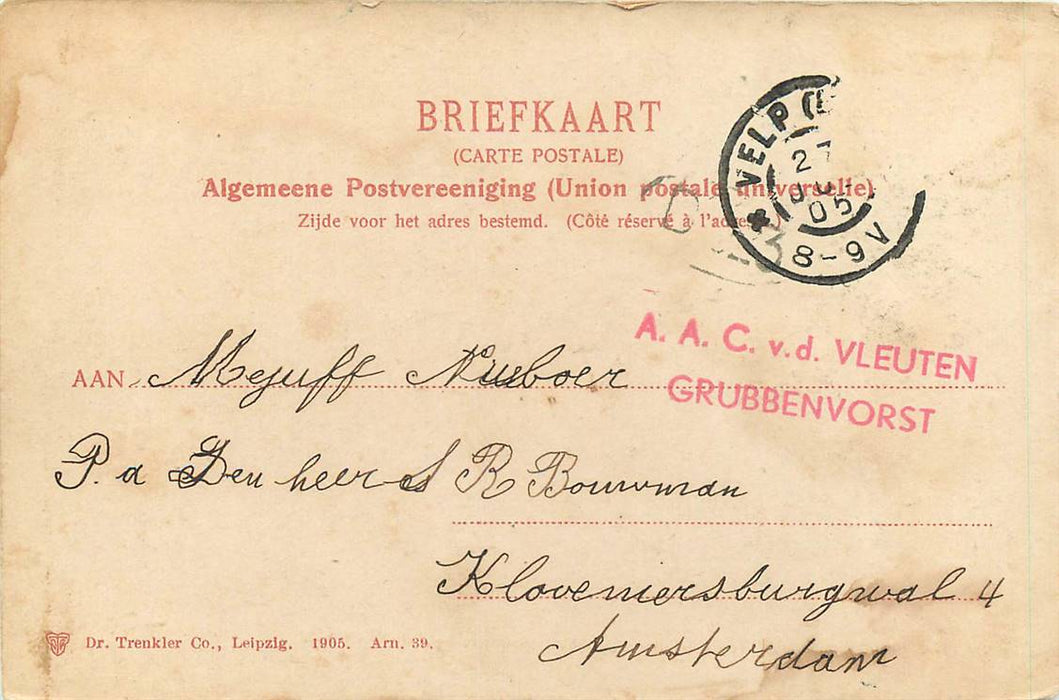 BRIEFKAART
(CARTE POSTALE)
Algemeene Postvereeniging (Union postale universelle)
Zijde voor het adres bestemd. (Côté réservé à l'adresse.)
* VELP
27
05
8-9V
A. A. C. v.d. VLEUTEN
GRUBBENVORST
AAN Mejuff
P. a Den heer S R Bouwman
Kloveniersburgwal 4
Amsterdam
Dr. Trenkler Co., Leipzig. 1905. Arn. 39.